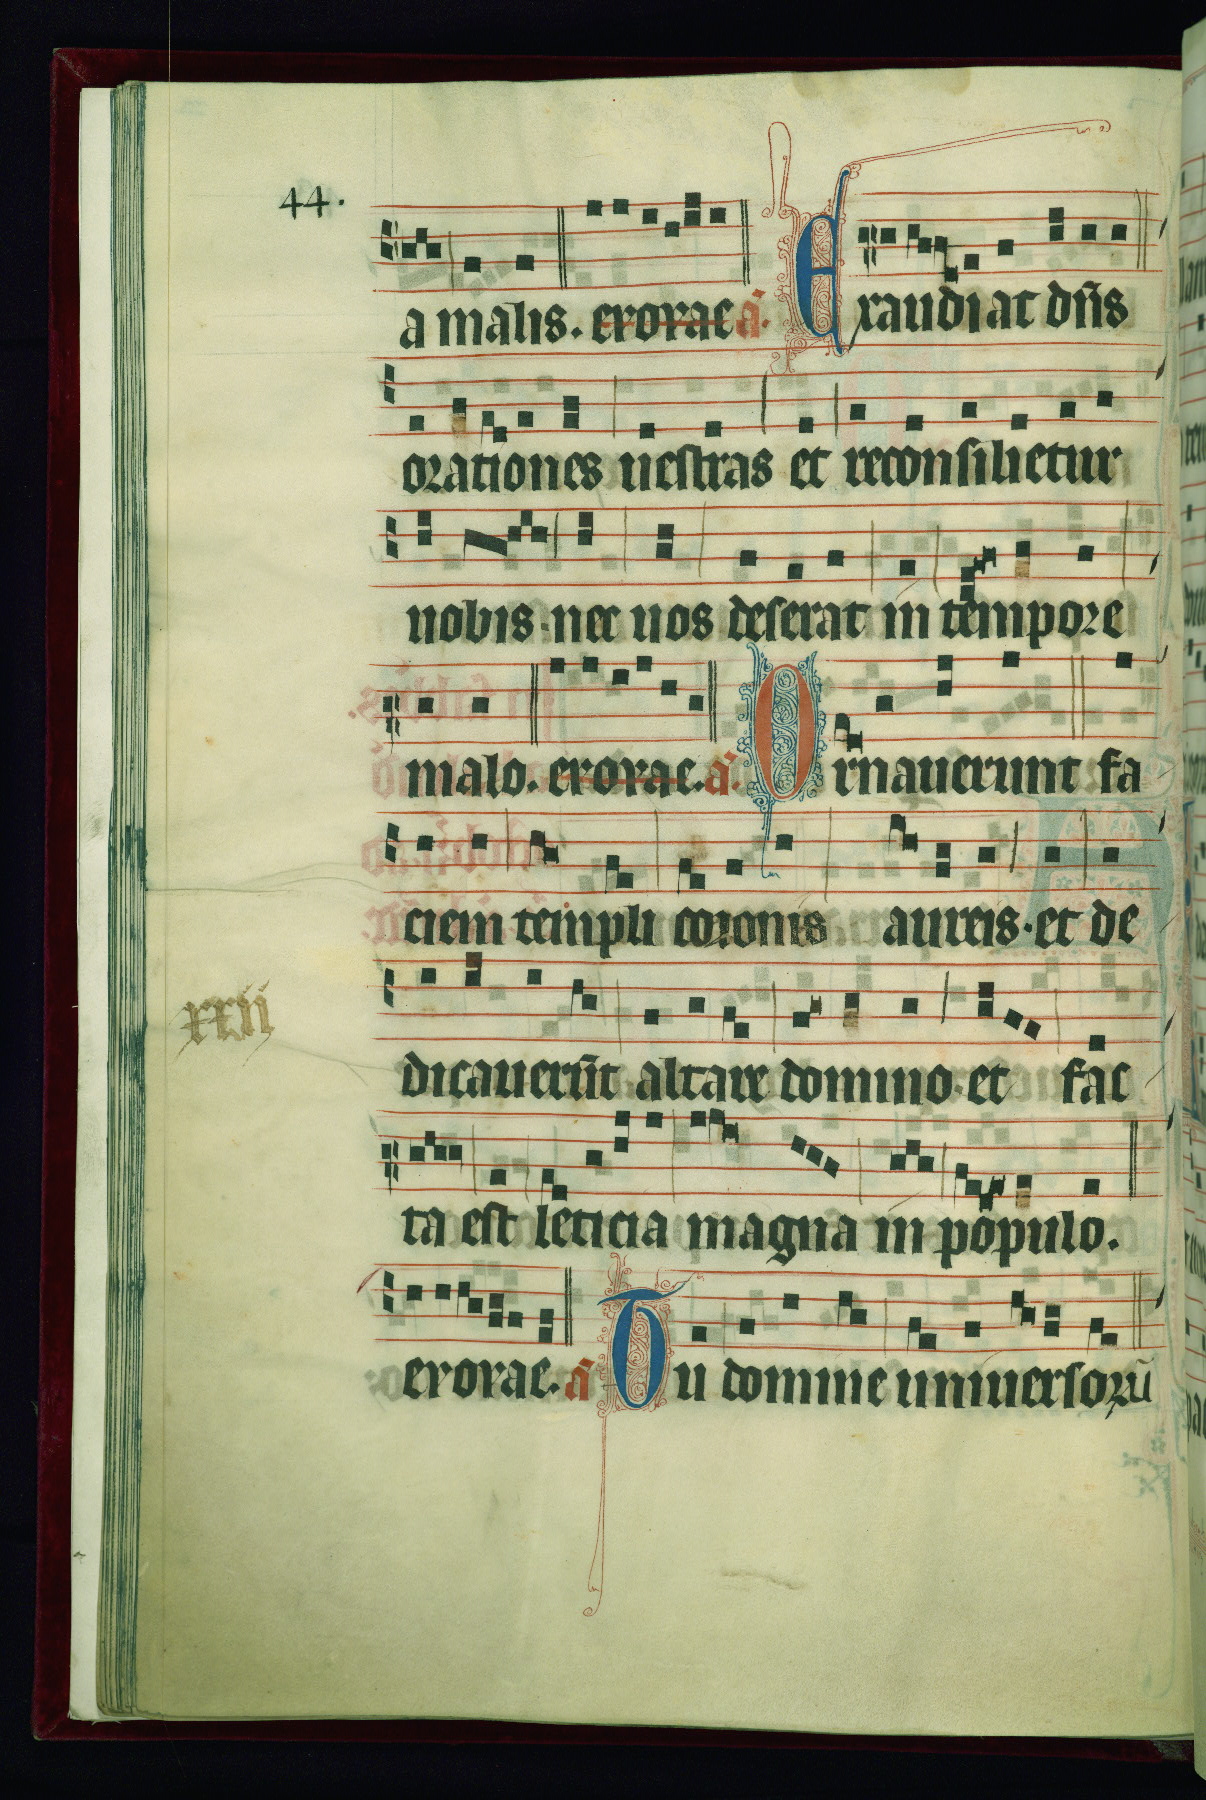 44.
a malis. evovae a. Exaudiat dn̄s
orationes uestras et reconsilietur
uobis. nec uos deserat in tempore
malo. evovae. a. Ornauerunt fa
ciem templi coronis aureis. et de
dicauerūt altare domino. et fac
xxii
ta est leticia magna in populo.
evovae. a Tu domine uniuersorū